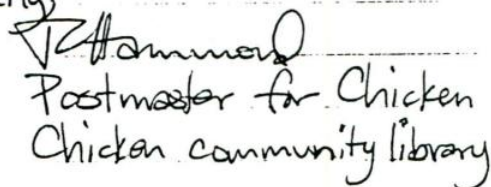 RHammond
Postmaster for Chicken
Chicken community library